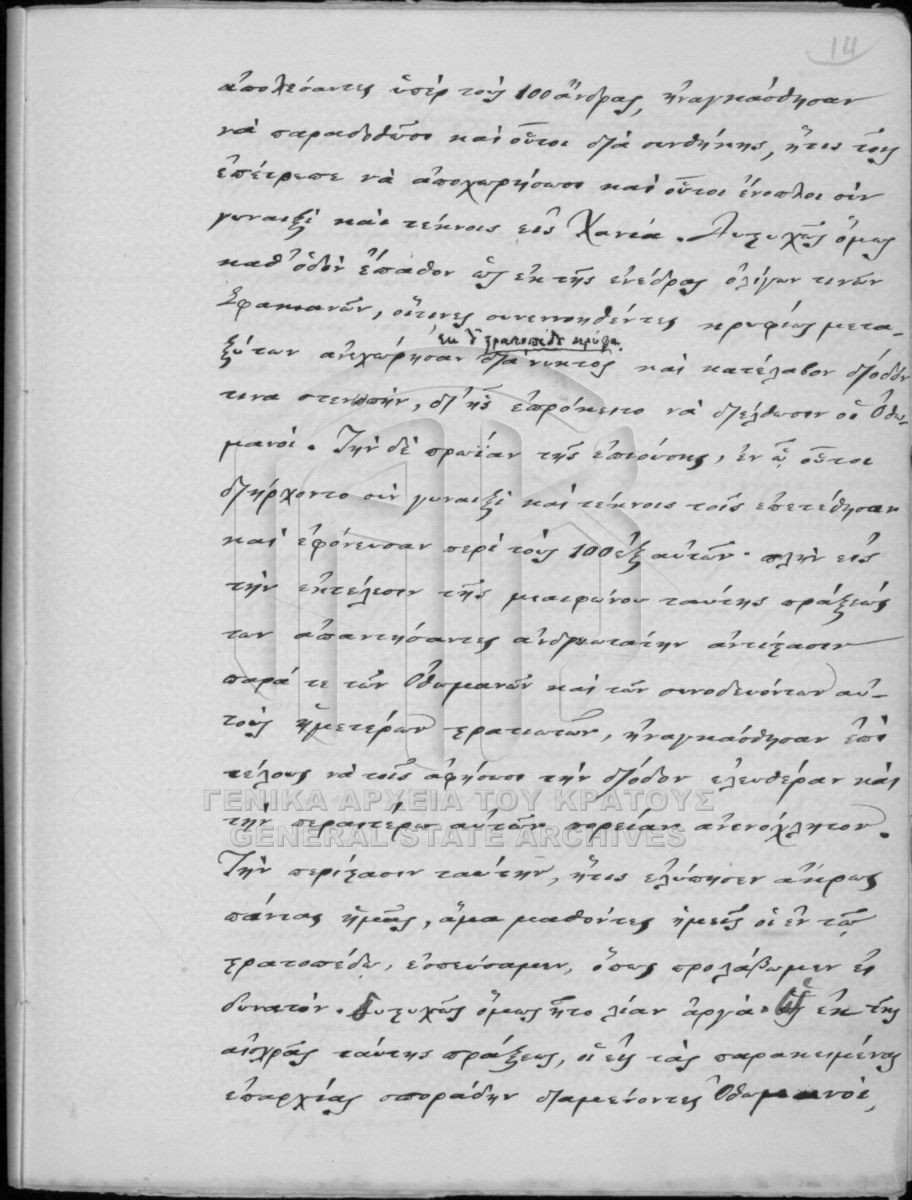 14
ἀπολέσαντες ὑπὲρ τοὺς 100 ἄνδρας, ἠναγκάσθησαν
νὰ παραδοθῶσι καὶ οὗτοι διὰ συνθήκης, ἥτις τοῖς
ἐπέτρεπε νὰ ἀποχωρήσωσι καὶ οὗτοι ἔνοπλοι σὺν
γυναιξὶ καὶ τέκνοις εἰς Χανιά. Δυστυχῶς ὅμως
καθ' ὁδὸν ἔπαθον ὡς ἐκ τῆς ἐνέδρας ὀλίγων τινῶν
Σφακιανῶν, οἵτινες συνεννοηθέντες κρυφίως μετα-
ἐκ τοῦ στρατοπέδου κρύφα
ξύ των ἀνεχώρησαν διὰ νυκτὸς καὶ κατέλαβον δίοδόν
τινα στενωπὴν, δι' ἧς ἐπρόκειτο νὰ διέλθωσιν οἱ Ὀθω-
μανοί. Τὴν δὲ πρωΐαν τῆς ἐπιούσης, ἐν ᾧ οὗτοι
διήρχοντο σὺν γυναιξὶ καὶ τέκνοις τοῖς ἐπετέθησαν
καὶ ἐφόνευσαν περὶ τοὺς 100 ἐξ αὐτῶν· πλὴν εἰς
τὴν ἐκτέλεσιν τῆς μιαιφόνου ταύτης πράξεώς
των ἀπαντήσαντες ἀνδρειωτάτην ἀντίστασιν
παρά τε τῶν Ὀθωμανῶν καὶ τῶν συνοδευόντων αὐ-
τοὺς ἡμετέρων στρατιωτῶν, ἠναγκάσθησαν ἐπὶ
τέλους νὰ τοῖς ἀφήσωσι τὴν δίοδον ἐλευθέραν καὶ
τὴν περαιτέρω αὐτῶν πορείαν ἀνενόχλητον.
Τὴν περίστασιν ταύτην, ἥτις ἐλύπησεν ἄκρως
πάντας ἡμᾶς, ἅμα μαθόντες ἡμεῖς οἱ ἐν τῷ
στρατοπέδῳ, ἐσπεύσαμεν, ὅπως προλάβωμεν εἰ
δυνατόν. δυστυχῶς ὅμως ἦτο λίαν ἀργά. Ὡς ἐκ τῆς
αἰσχρᾶς ταύτης πράξεως, οἱ εἰς τὰς παρακειμένας
ἐπαρχίας σποράδην διαμένοντες Ὀθωμανοί,
ΓΕΝΙΚΑ ΑΡΧΕΙΑ ΤΟΥ ΚΡΑΤΟΥΣ
GENERAL STATE ARCHIVES